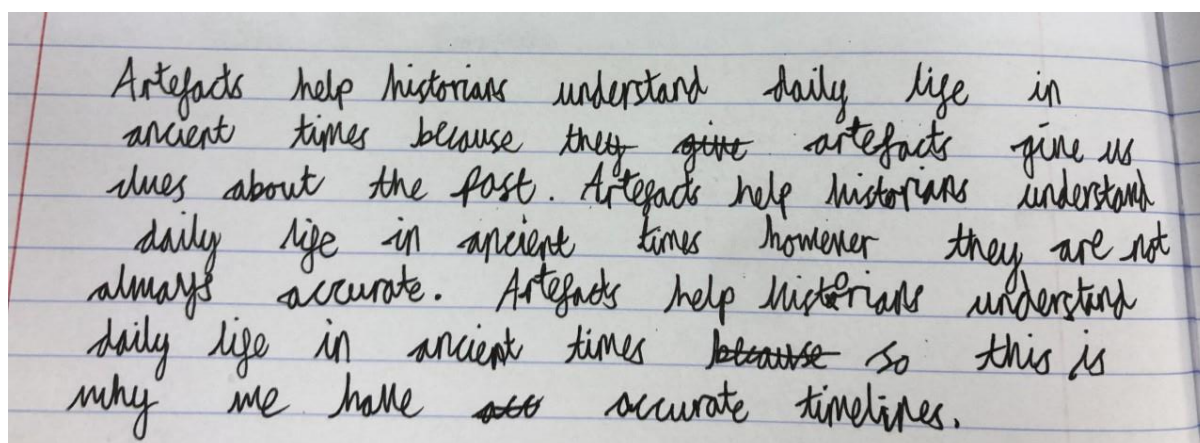 Artefacts help historians understand daily life in
ancient times because they give artefacts give us
clues about the past. Artefacts help historians understand
daily life in ancient times however they are not
always accurate. Artefacts help historians understand
daily life in ancient times because so this is
why we have acc accurate timelines.